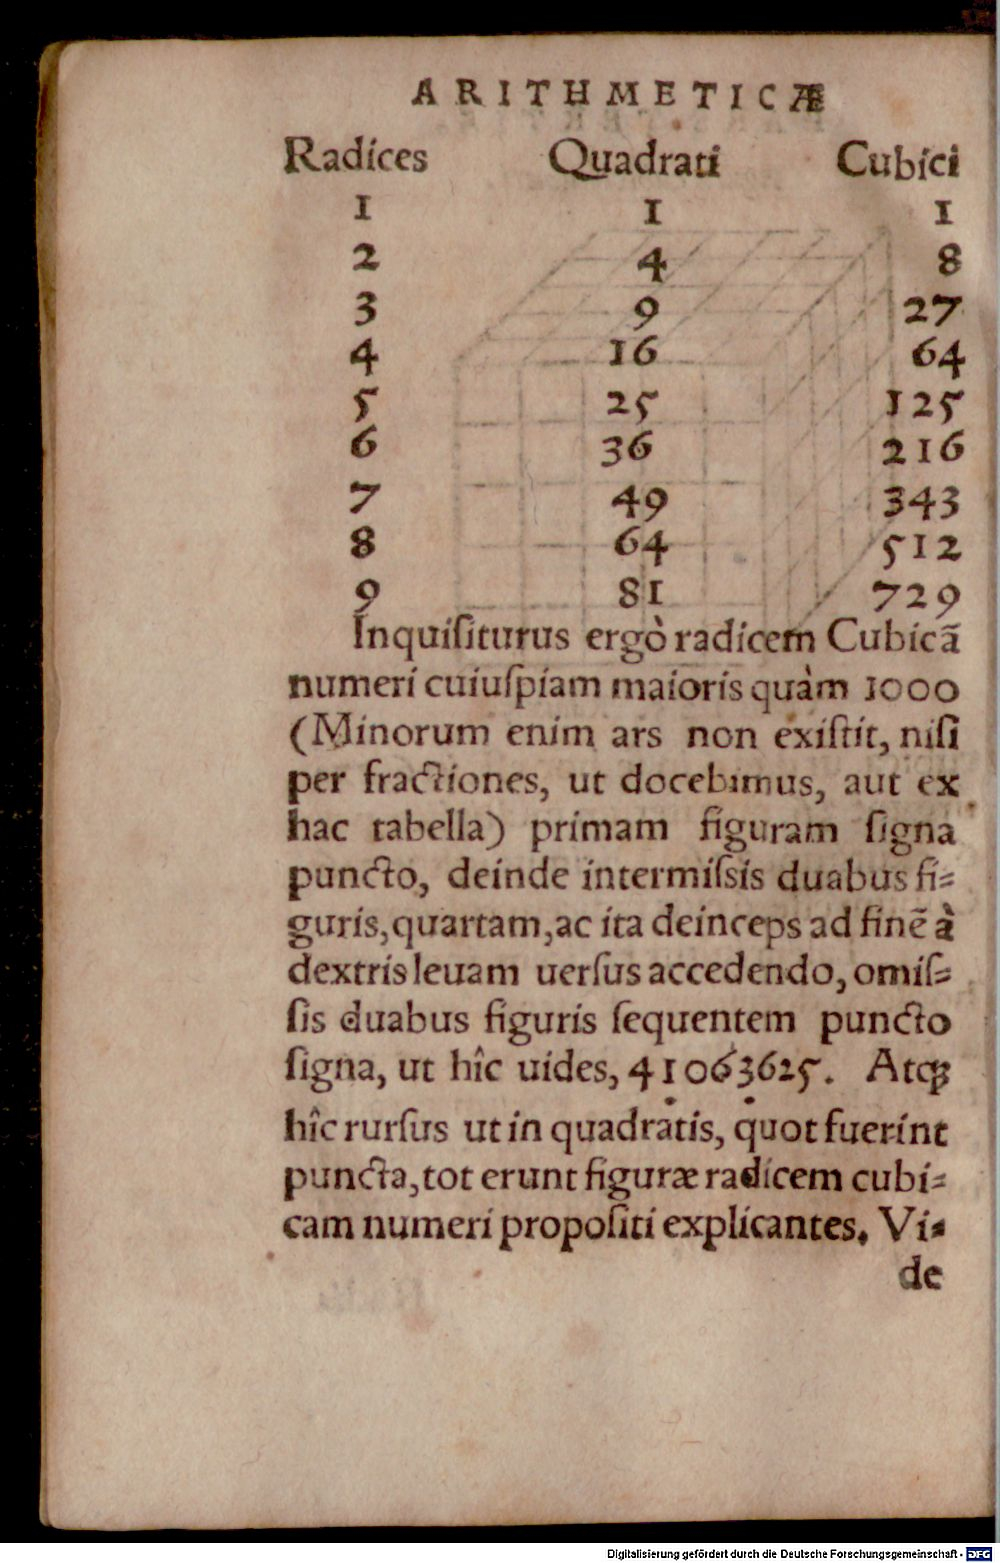 ARITHMETICÆ
Radices Quadrati Cubici
1 1 1
2 4 8
3 9 27
4 16 64
5 25 125
6 36 216
7 49 343
8 64 512
9 81 729
Inquiſiturus ergò radicem Cubicã
numeri cuiuſpiam maioris quàm 1000
(Minorum enim ars non exiſtit, niſi
per fractiones, ut docebimus, aut ex
hac tabella) primam figuram ſigna
puncto, deinde intermiſsis duabus fi⸗
guris, quartam, ac ita deinceps ad finẽ à
dextris leuam uerſus accedendo, omiſ⸗
ſis duabus figuris ſequentem puncto
ſigna, ut hîc uides, 41063625. Atqꝫ
hîc rurſus ut in quadratis, quot fuerint
puncta, tot erunt figuræ radicem cubi⸗
cam numeri propoſiti explicantes. Vi⸗
de
Digitalisierung gefördert durch die Deutsche Forschungsgemeinschaft - DFG